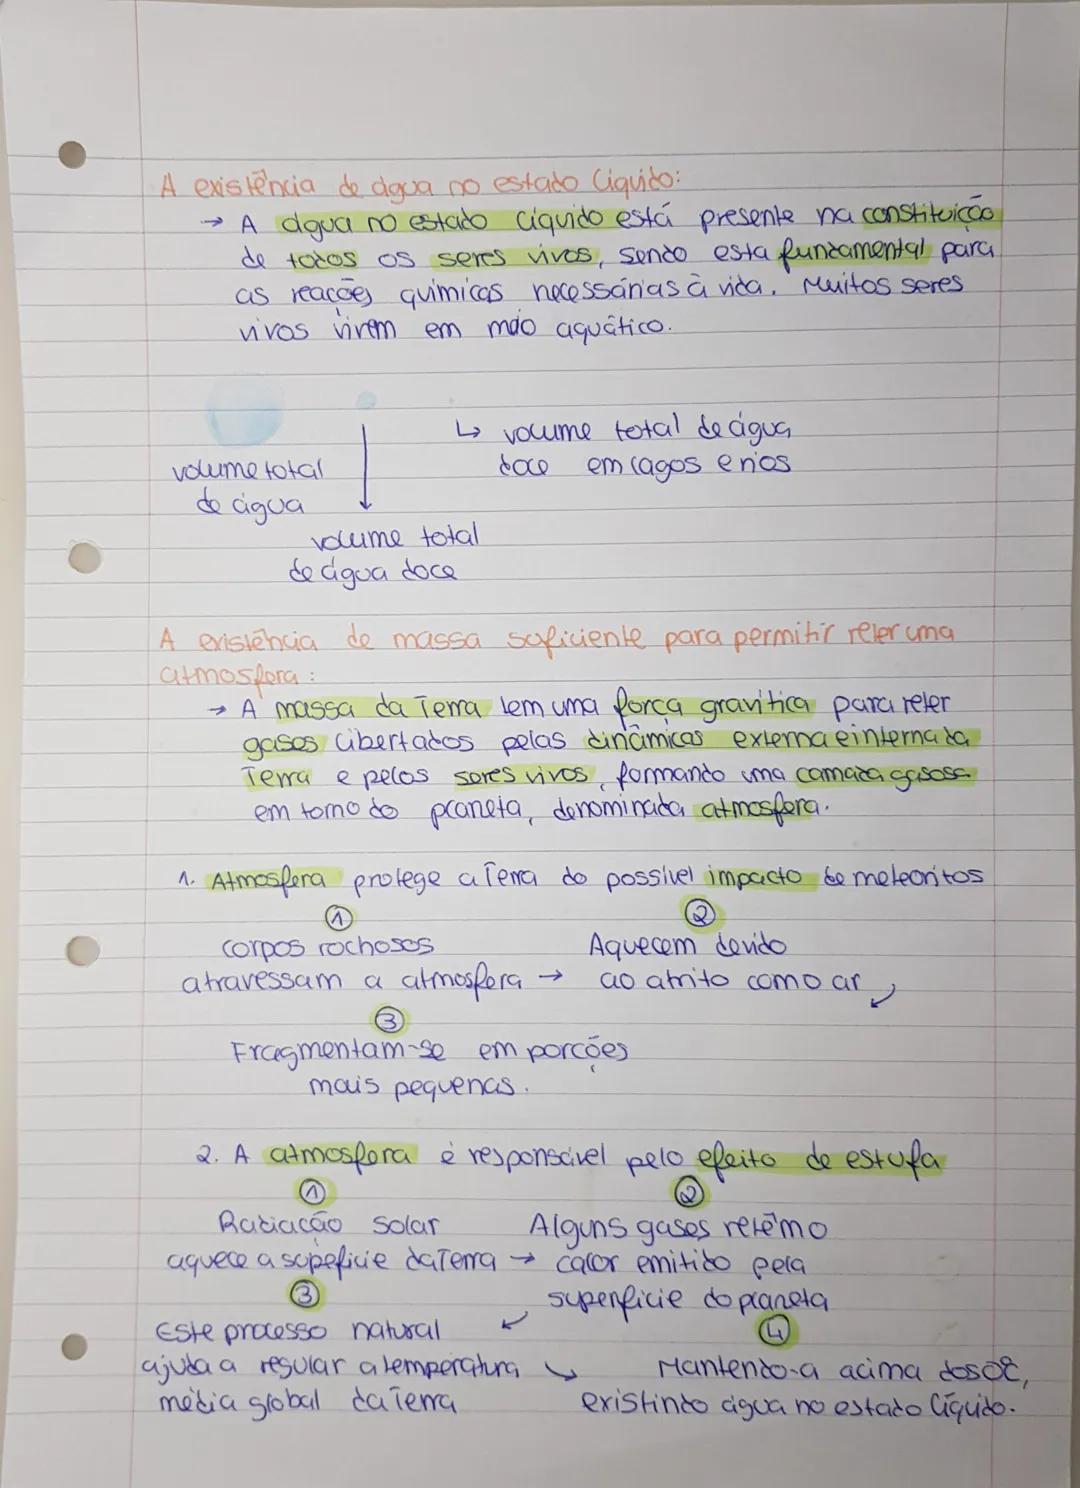 A existência de água no estado líquido:
→ A água no estado líquido está presente na constituição
de todos os seres vivos, sendo esta fundamental para
as reações químicas necessárias à vida. Muitos seres
vivos vivem em meio aquático.
volume total
de água
volume total
de água doce
↳ volume total de água
doce em lagos e rios
A existência de massa suficiente para permitir reter uma
atmosfera:
→ A massa da Terra tem uma força gravítica para reter
gases libertados pelas dinâmicas externa e interna da
Terra e pelos seres vivos, formando uma camada gasosa
em torno do planeta, denominada atmosfera.
1. Atmosfera protege a Terra do possível impacto de meteoritos
① ②
corpos rochosos Aquecem devido
atravessam a atmosfera → ao atrito com o ar
③
Fragmentam-se em porções
mais pequenas.
2. A atmosfera é responsável pelo efeito de estufa
① ②
Radiação solar Alguns gases retêm o
aquece a supefície da Terra → calor emitido pela
③ superfície do planeta
Este processo natural ④
ajuda a regular a temperatura Mantendo-a acima dos 0ºC,
média global da Terra existindo água no estado líquido.